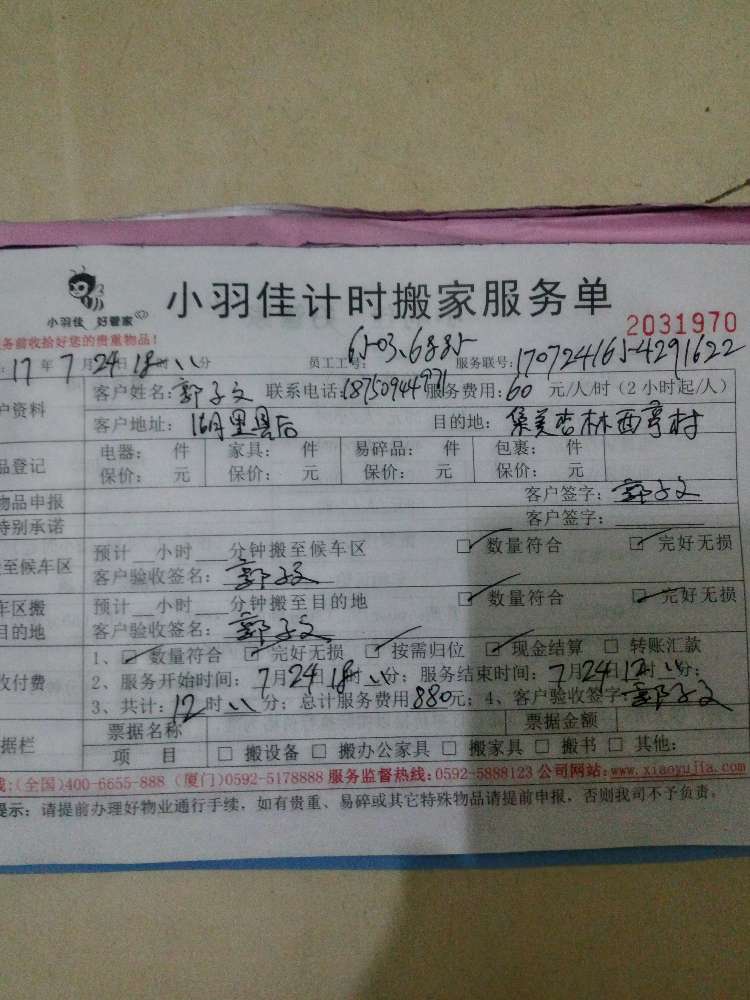 小羽佳 好管家
小羽佳计时搬家服务单
务前收拾好您的贵重物品！
2031970
17年7月24日18时 分 员工工号：6503.6885 服务联号：170724165-4291622
户资料 客户姓名：郭子文 联系电话：18750944771 服务费用：60 元/人/时（2小时起/人）
客户地址：湖里县后 目的地：集美杏林西亭村
品登记 电器： 件 家具： 件 易碎品： 件 包裹： 件
保价： 元 保价： 元 保价： 元 保价： 元
物品申报 客户签字：郭子文
特别承诺 客户签字：
至候车区 预计 小时 分钟搬至候车区 ☑ 数量符合 ☑ 完好无损
客户验收签名：郭子文
车区搬 预计 小时 分钟搬至目的地 ☑ 数量符合 ☑ 完好无损
目的地 客户验收签名：郭子文
1、☑ 数量符合 ☑ 完好无损 ☑ 按需归位 ☑ 现金结算 □ 转账汇款
收付费 2、服务开始时间：7月24日18时 分；服务结束时间：7月24日12时 分；
3、共计：12时 分；总计服务费用880元；4、客户验收签字：郭子文
据栏 票据名称 票据金额
项 目 □ 搬设备 □ 搬办公家具 □ 搬家具 □ 搬书 □ 其他：
线:(全国)400-6655-888 (厦门)0592-5178888 服务监督热线：0592-5888123 公司网站：www.xiaoyujia.com
提示：请提前办理好物业通行手续，如有贵重、易碎或其它特殊物品请提前申报，否则我司不予负责。